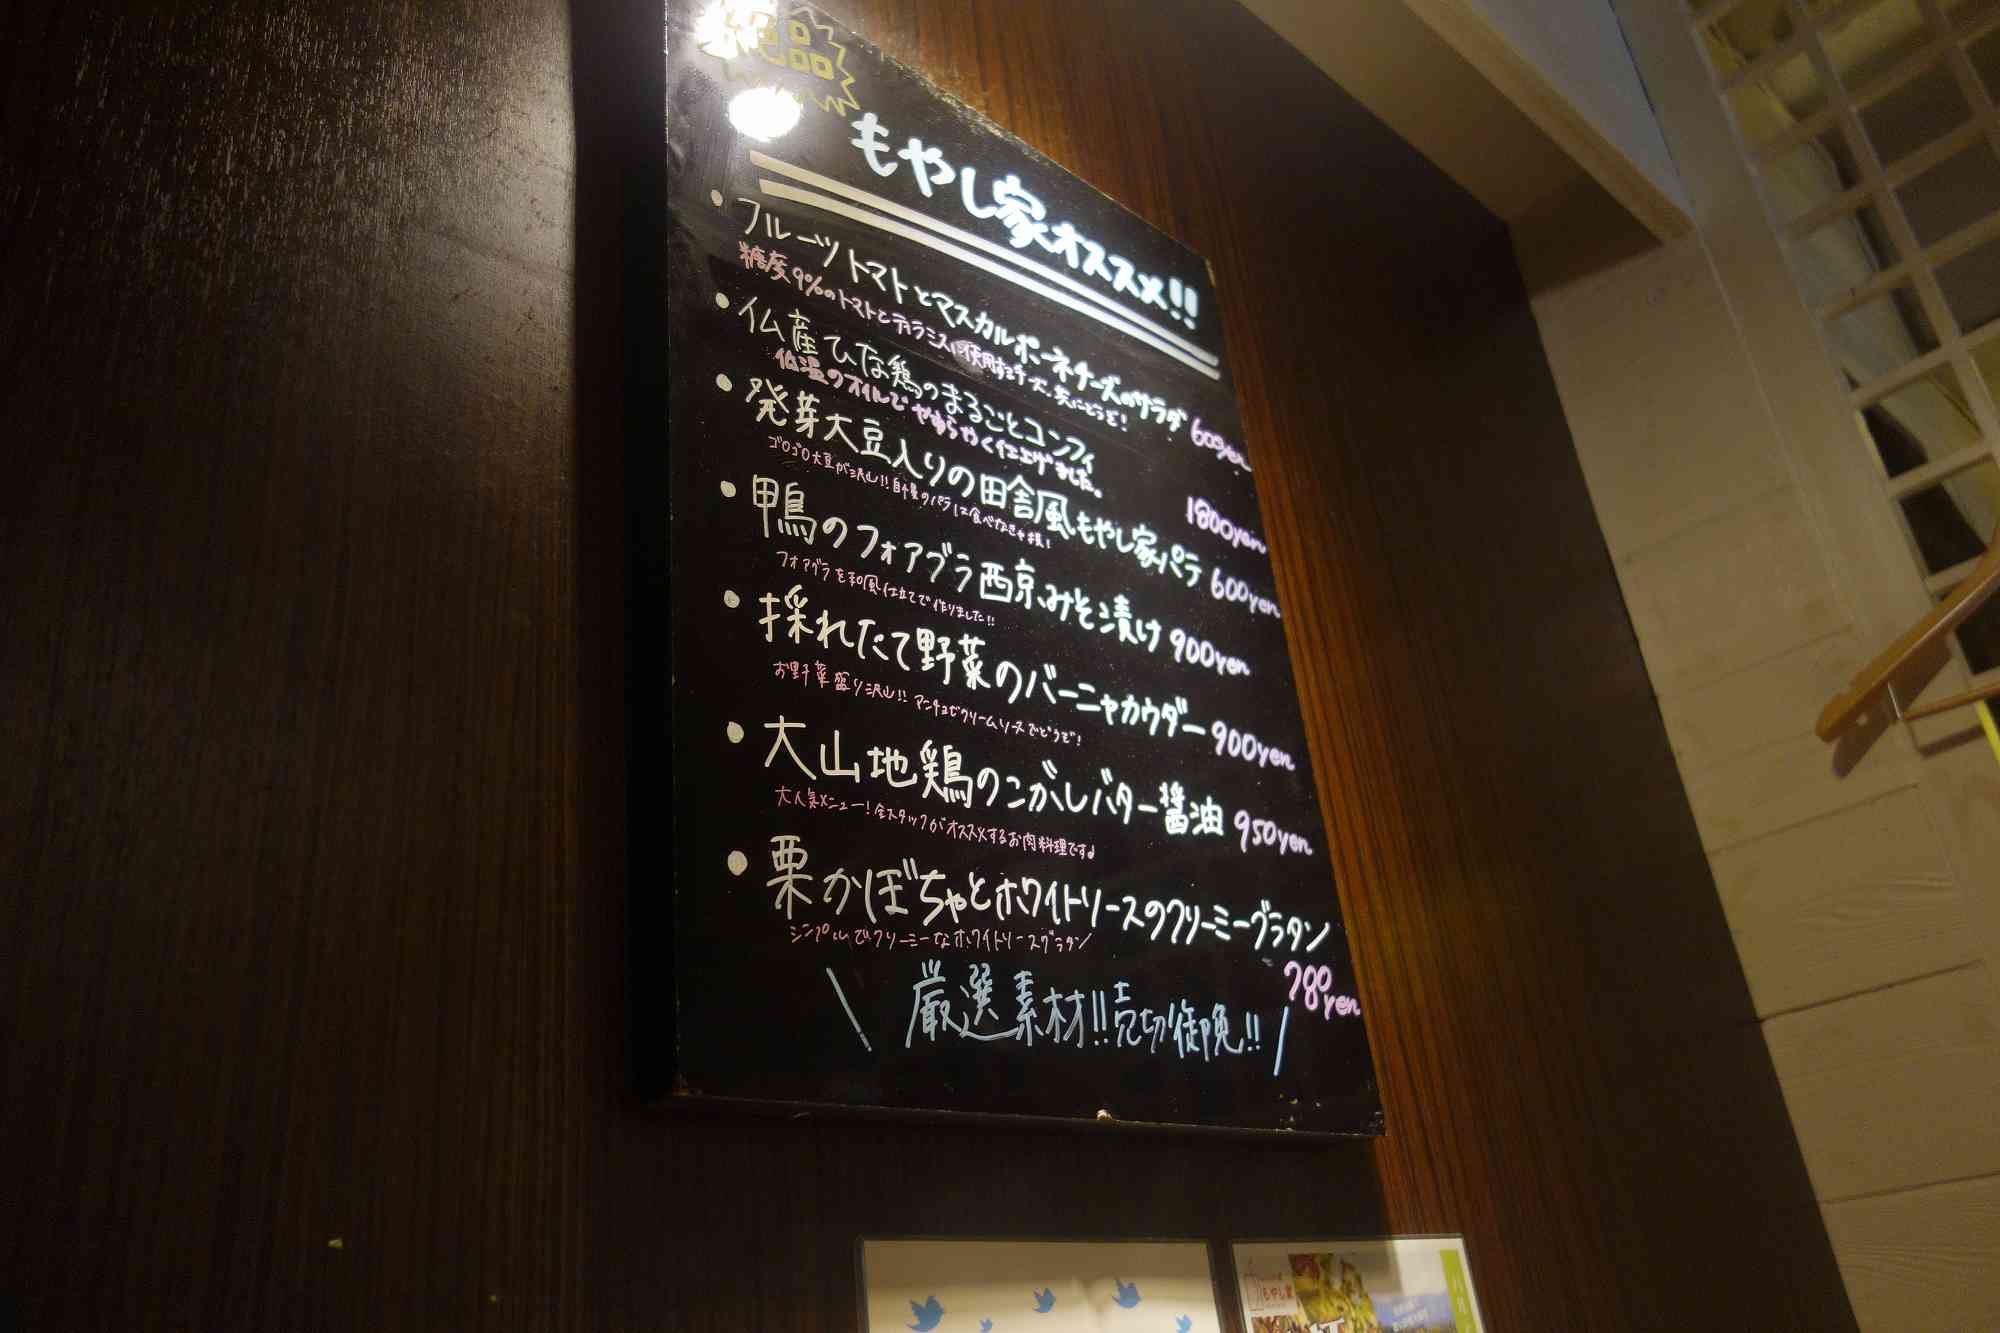 絶品
もやし家オススメ!!
・フルーツトマトとマスカルポーネチーズのサラダ 600yen
糖度9%のトマトとティラミスに使用するチーズ、気にどうぞ!
・仏産ひな鶏のまるごとコンフィ
低温のオイルでやわらかく仕上げました。
1800yen
・発芽大豆入りの田舎風もやし家パテ 600yen
ゴロゴロ大豆が沢山!!自慢のパテは食べなきゃ損!
・鴨のフォアグラ西京みそ漬け 900yen
フォアグラを和風仕立てで作りました!!
・採れたて野菜のバーニャカウダー 900yen
お野菜盛り沢山!!アンチョビクリームソースでどうぞ!
・大山地鶏のこがしバター醤油 950yen
大人気メニュー!全スタッフがオススメするお肉料理です♪
・栗かぼちゃとホワイトソースのクリーミーグラタン
シンプルでクリーミーなホワイトソースグラタン
780yen
\ 厳選素材!!売切御免!! /
もやし家